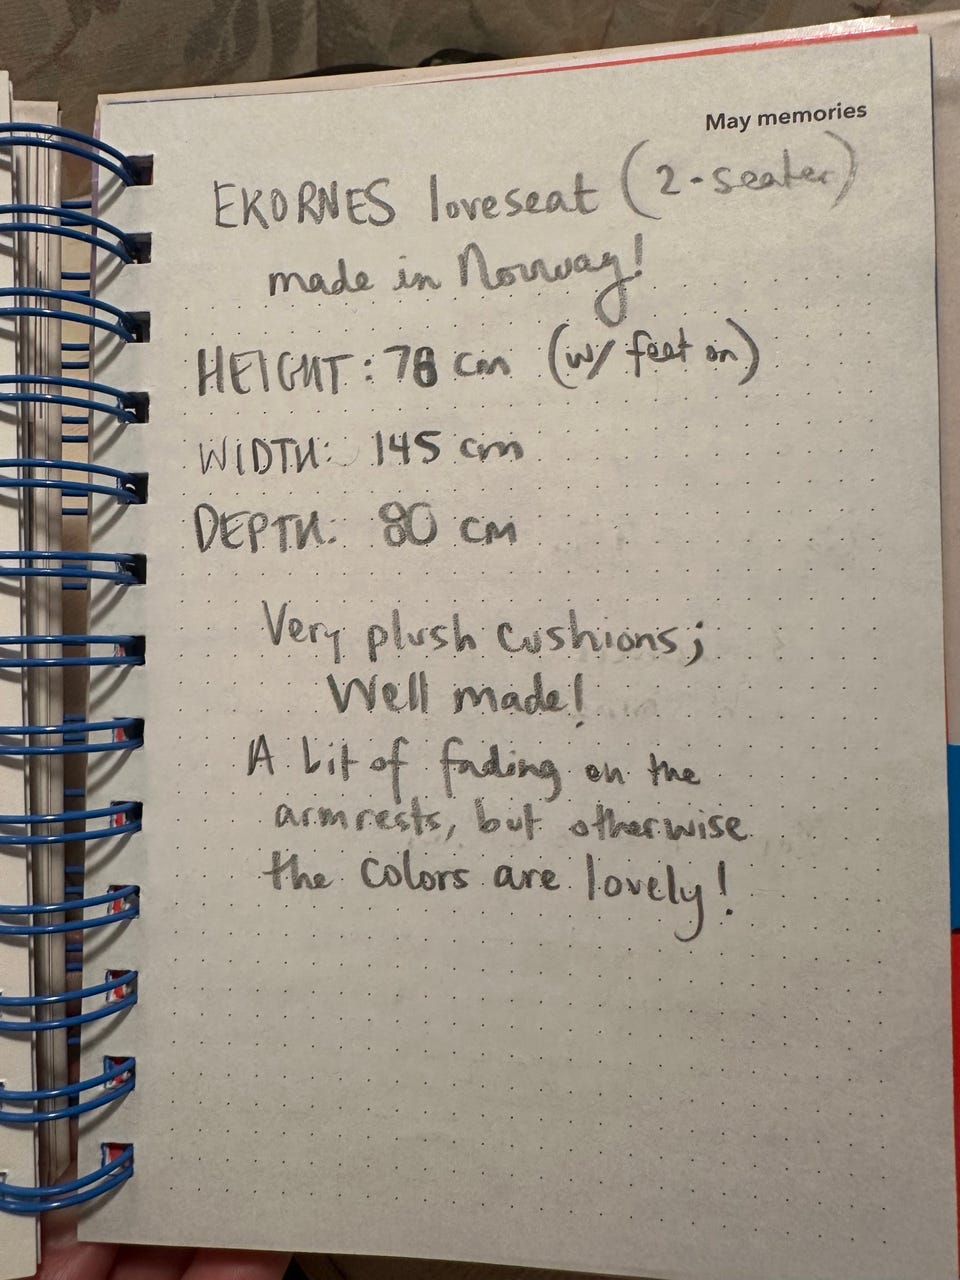 May memories
EKORNES loveseat (2-seater)
made in Norway!
HEIGHT: 76 cm (w/ feet on)
WIDTH: 145 cm
DEPTH: 80 CM
Very plush cushions;
Well made!
A bit of fading on the
armrests, but otherwise
the colors are lovely!